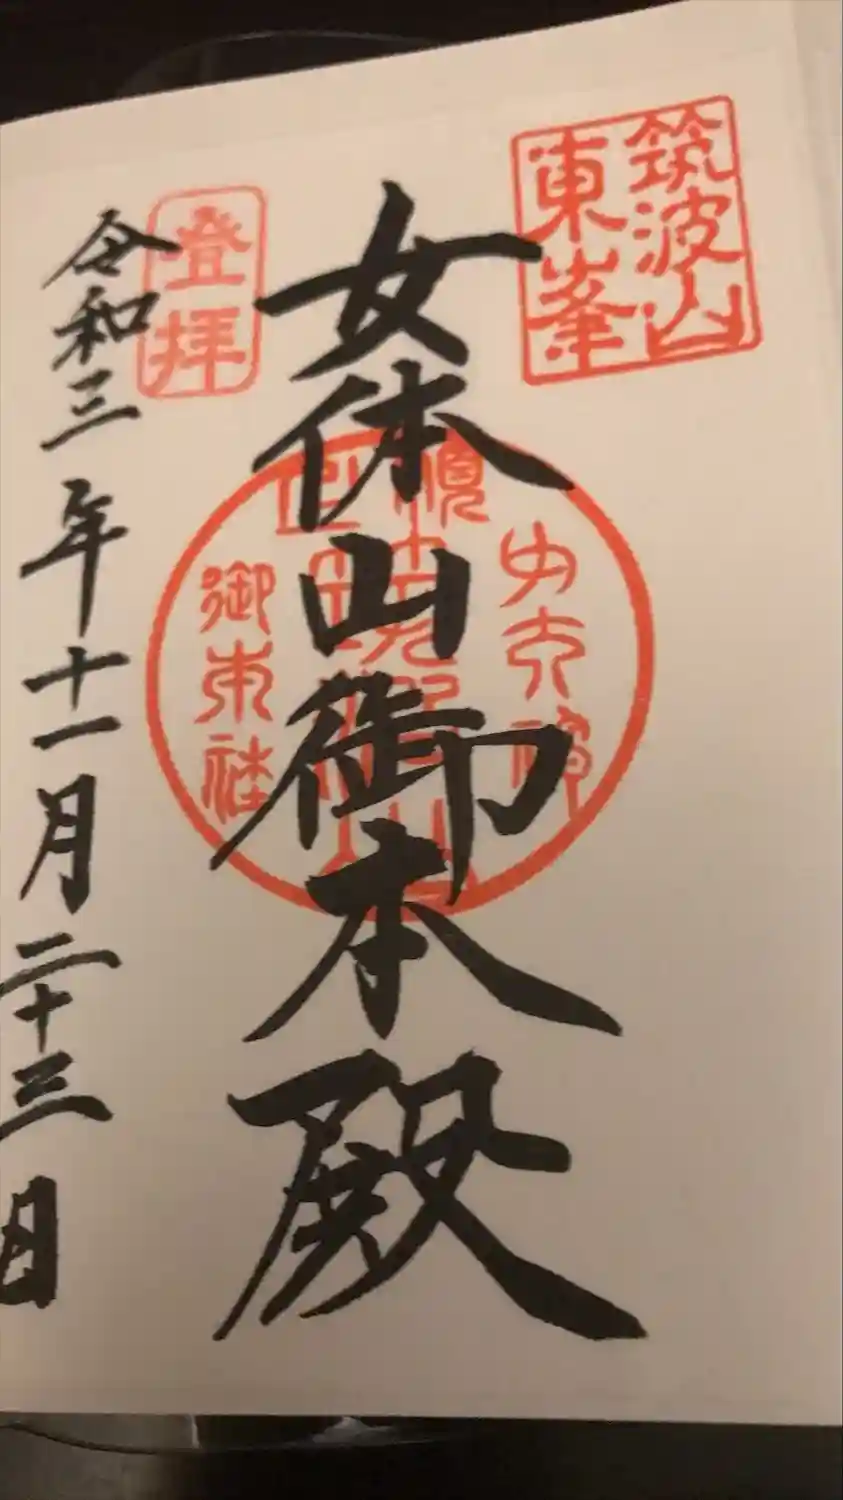 筑波山
東峯
女体山御本殿
登拝
令和三年十一月二十三日
御本社